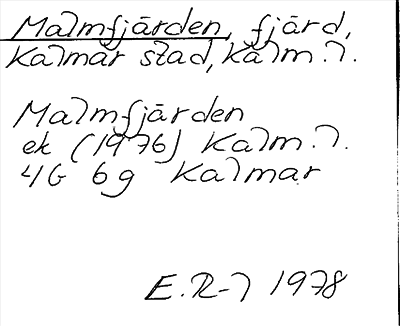 Malmfjärden, fjärd,
Kalmar stad, Kalm. l.
Malmfjärden
ek (1976) Kalm. l.
4G 6g Kalmar
E.R-l 1978